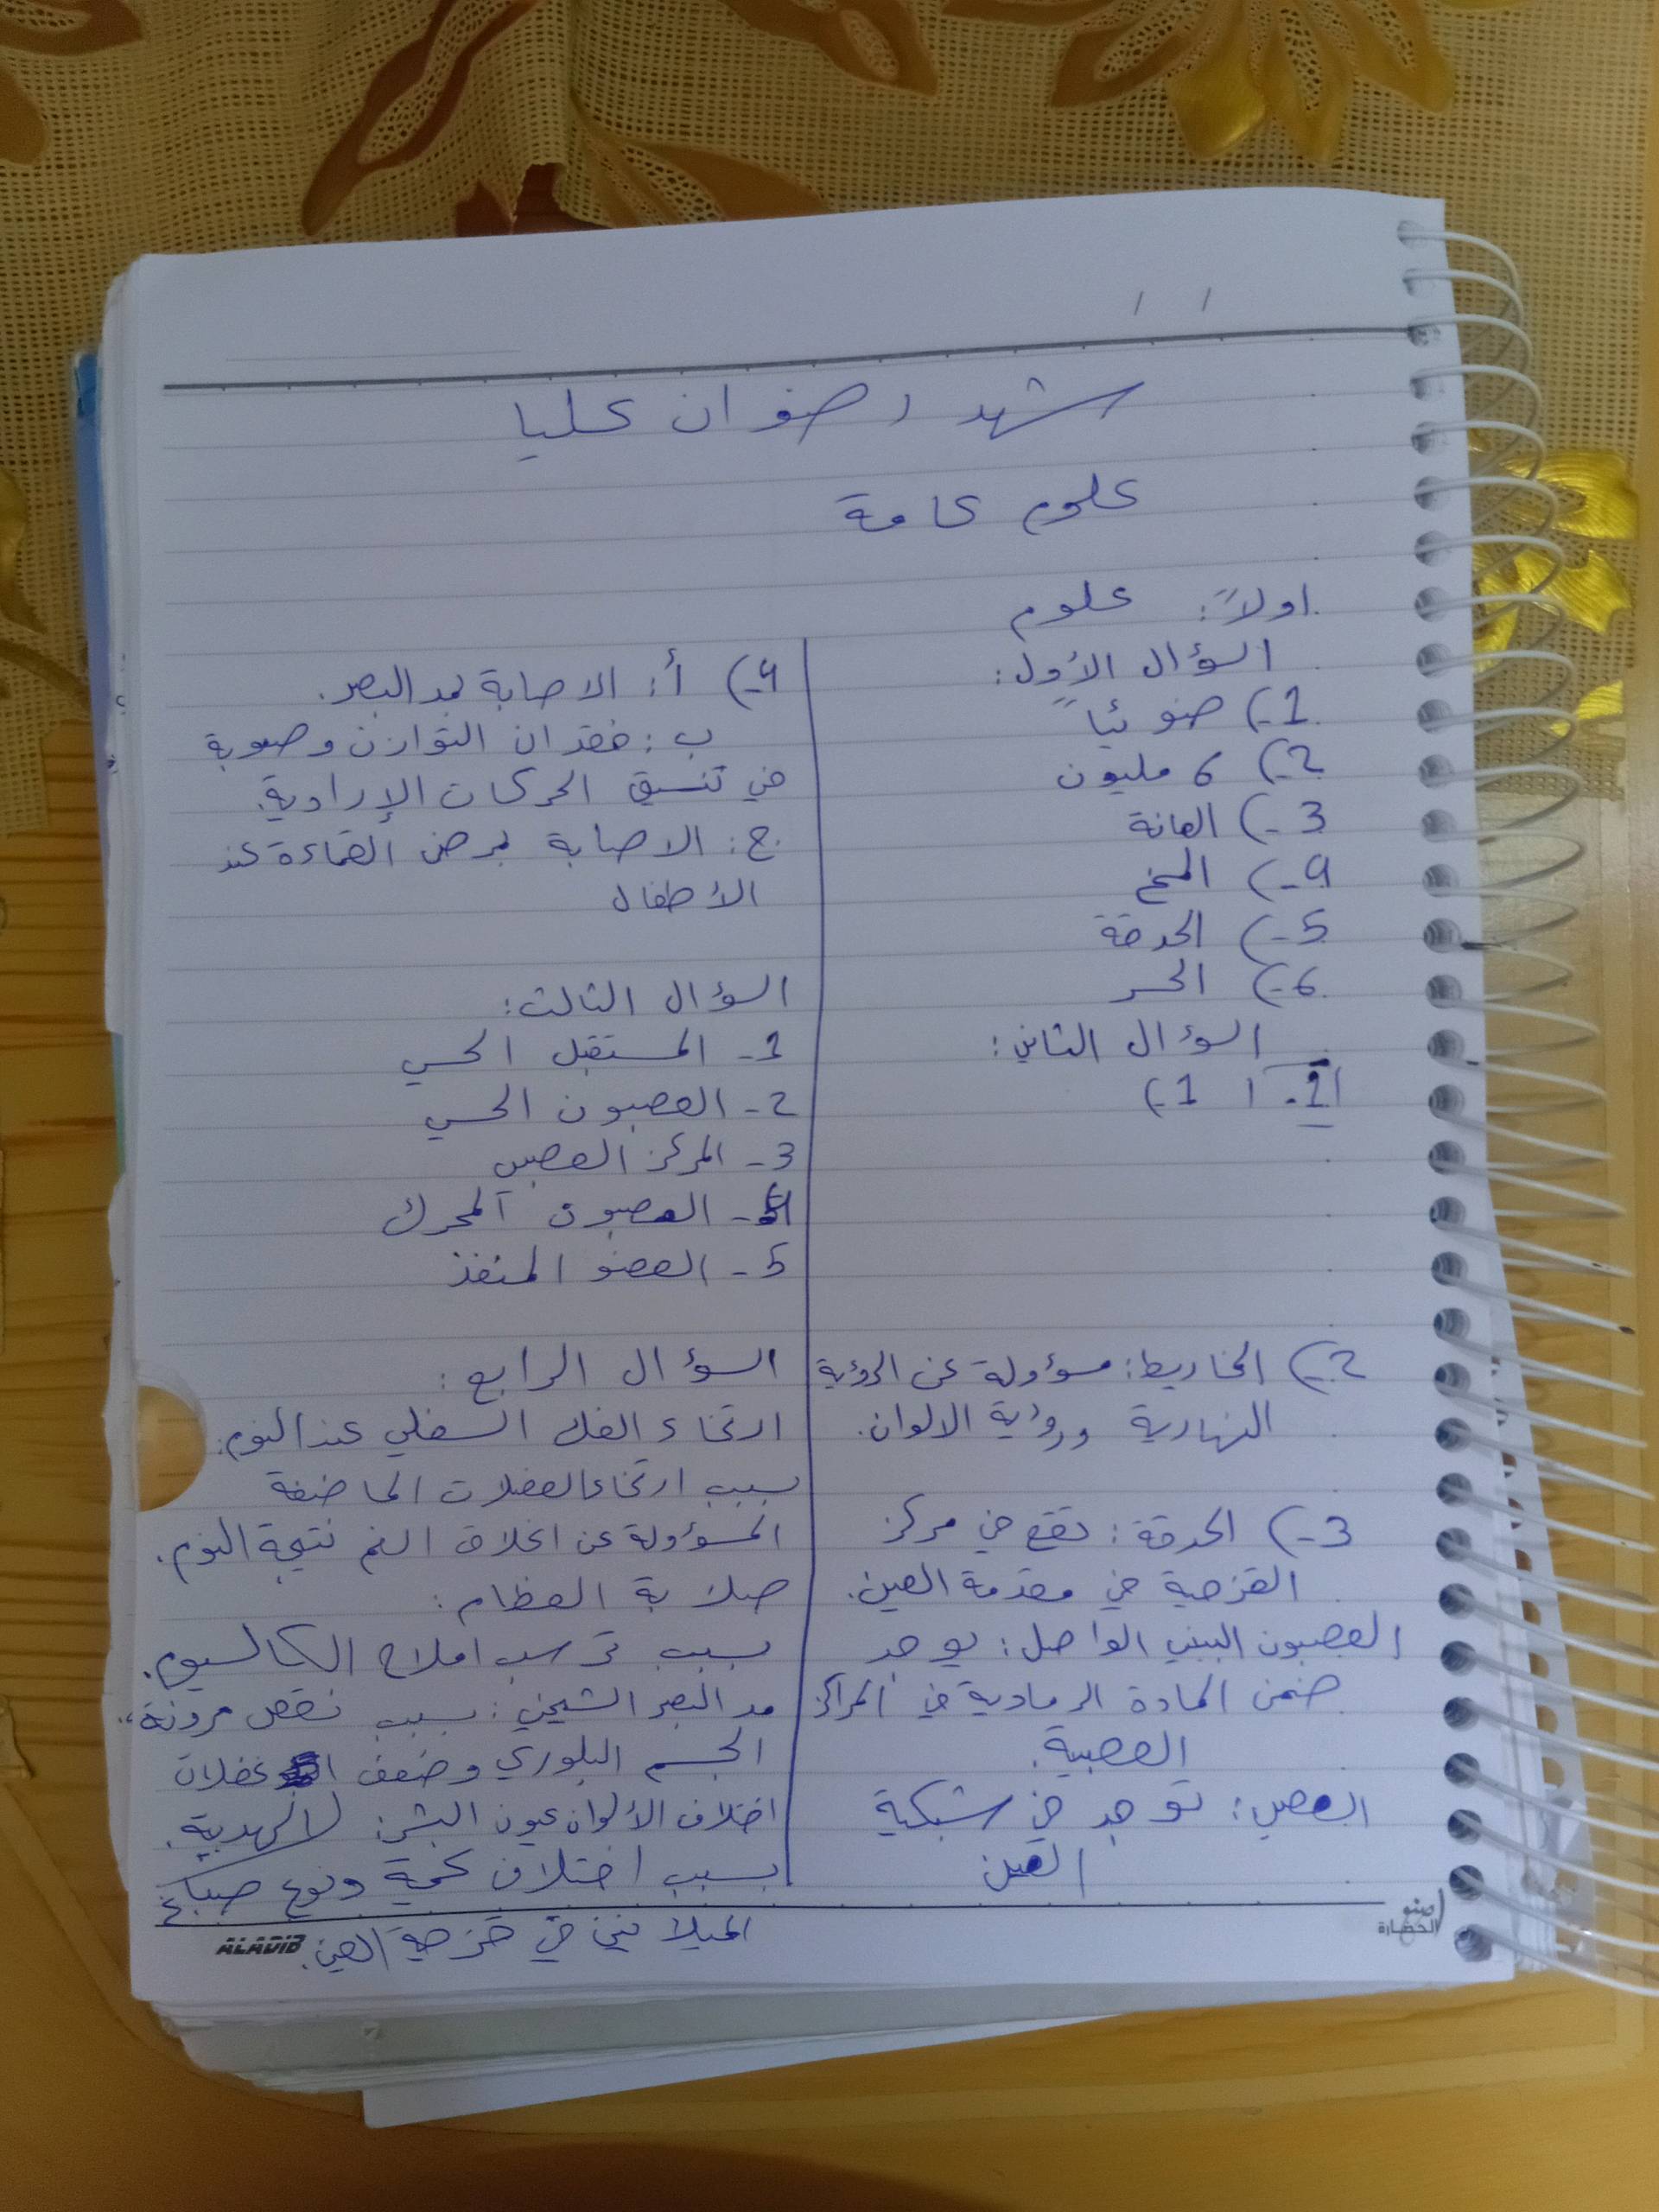 / /
شهد رضوان عليا
علوم عامة
اولاً: علوم
السؤال الأول:
1-) ضوئياً
2-) 6 مليون
3-) العانة
4-) المخ
5-) الحدقة
6-) الحر
السؤال الثاني:
1- ا 1-)
2-) المخاريط: مسؤولة عن الرؤية
النهارية ورؤية الالوان.
3-) الحدقة: تقع في مركز
القزحية في مقدمة العين.
العصبون البيني الواصل: يوجد
ضمن المادة الرمادية في المراكز
العصبية.
العصي: توجد في شبكية
العين
4-) أ: الاصابة بمد البصر.
ب: فقدان التوازن وصعوبة
في تنسيق الحركات الإرادية.
ج: الاصابة بمرض القماءة عند
الأطفال
السؤال الثالث:
1- المستقبل الحسي
2- العصبون الحسي
3- المركز العصبي
4- العصبون المحرك
5- العضو المنفذ
السؤال الرابع:
ارتخاء الفك السفلي عند النوم:
بسبب ارتخاء العضلات الماضغة
المسؤولة عن اغلاق الفم نتيجة النوم.
صلابة العظام:
بسبب ترسب املاح الكالسيوم.
مد البصر الشيخي: بسبب نقص مرونة
الجسم البلوري وضعف عضلات
الهدبية.
اختلاف الألوان عيون البشر:
بسبب اختلاف كمية ونوع صباغ
الميلانين في قزحية العين.
ALADIB
الحضارة